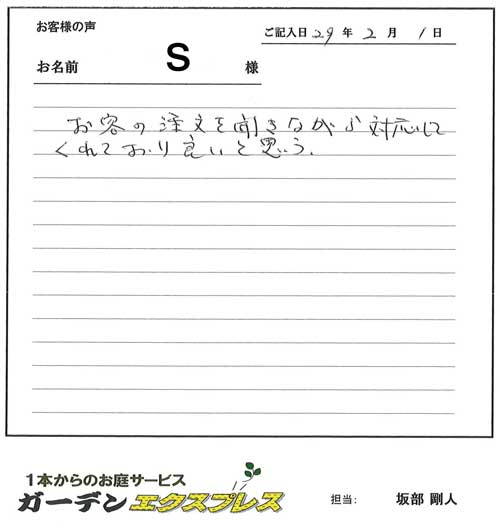 お客様の声
ご記入日 29 年 2 月 1 日
お名前 S 様
お客の注文を聞きながら対応して
くれており良いと思う。
1本からのお庭サービス
ガーデンエクスプレス
担当: 坂部 剛人